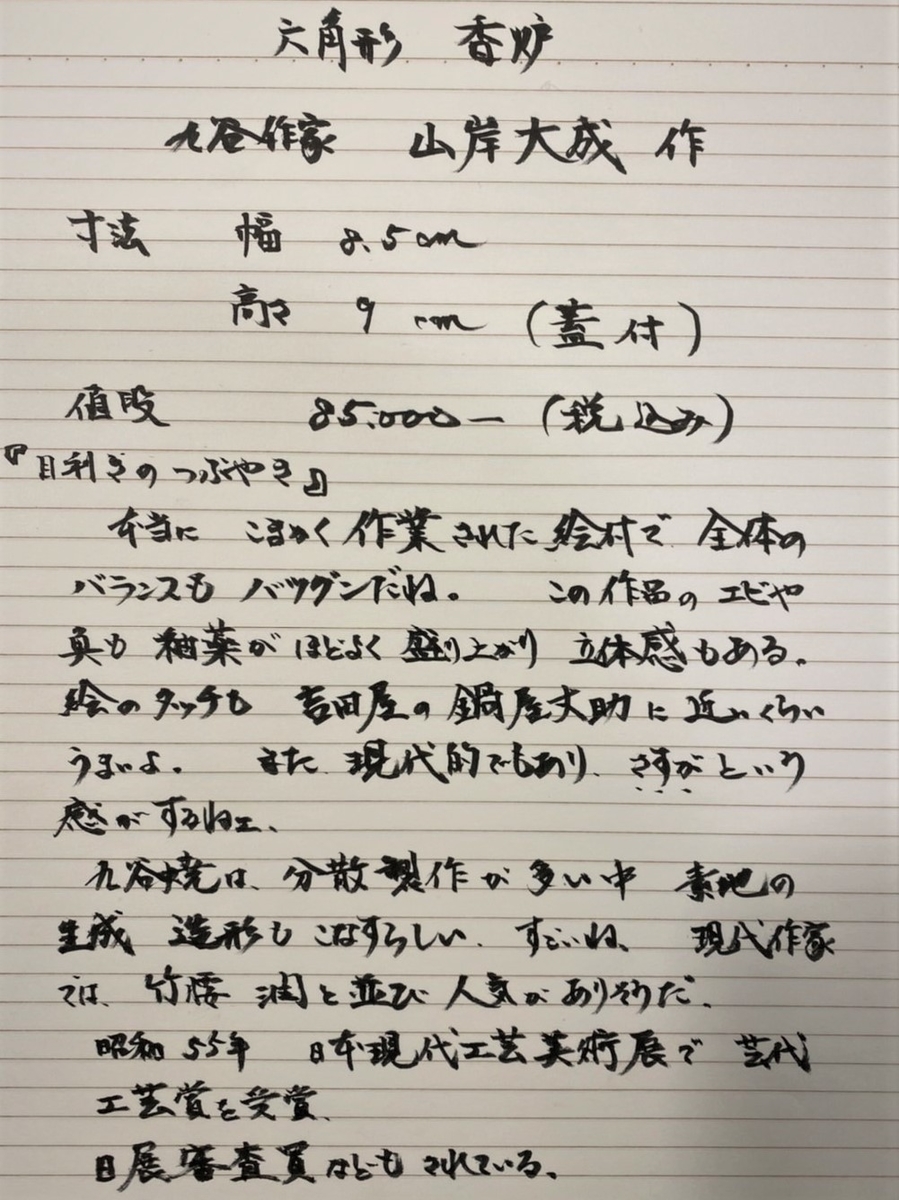 六角形 香炉
九谷作家 山岸大成 作
寸法 幅 8.5cm
高さ 9 cm (蓋付)
値段 85.000ー (税込み)
『目利きのつぶやき』
本当に こまかく 作業された 絵付で 全体の
バランスも バツグンだね。 この作品の エビや
魚も 釉薬が ほどよく 盛り上がり 立体感もある。
絵のタッチも 吉田屋の 鍋屋丈助に 近いくらい
うまいよ。 また 現代的でもあり、さすがという
感がするねェ、
九谷焼は、分散製作が多い中 素地の
生成 造形も こなすらしい、すごいね、 現代作家
では、竹腰 潤と並び 人気がありそうだ、
昭和55年 日本現代工芸美術展で 芸代
工芸賞を受賞、
日展審査員なども されている。